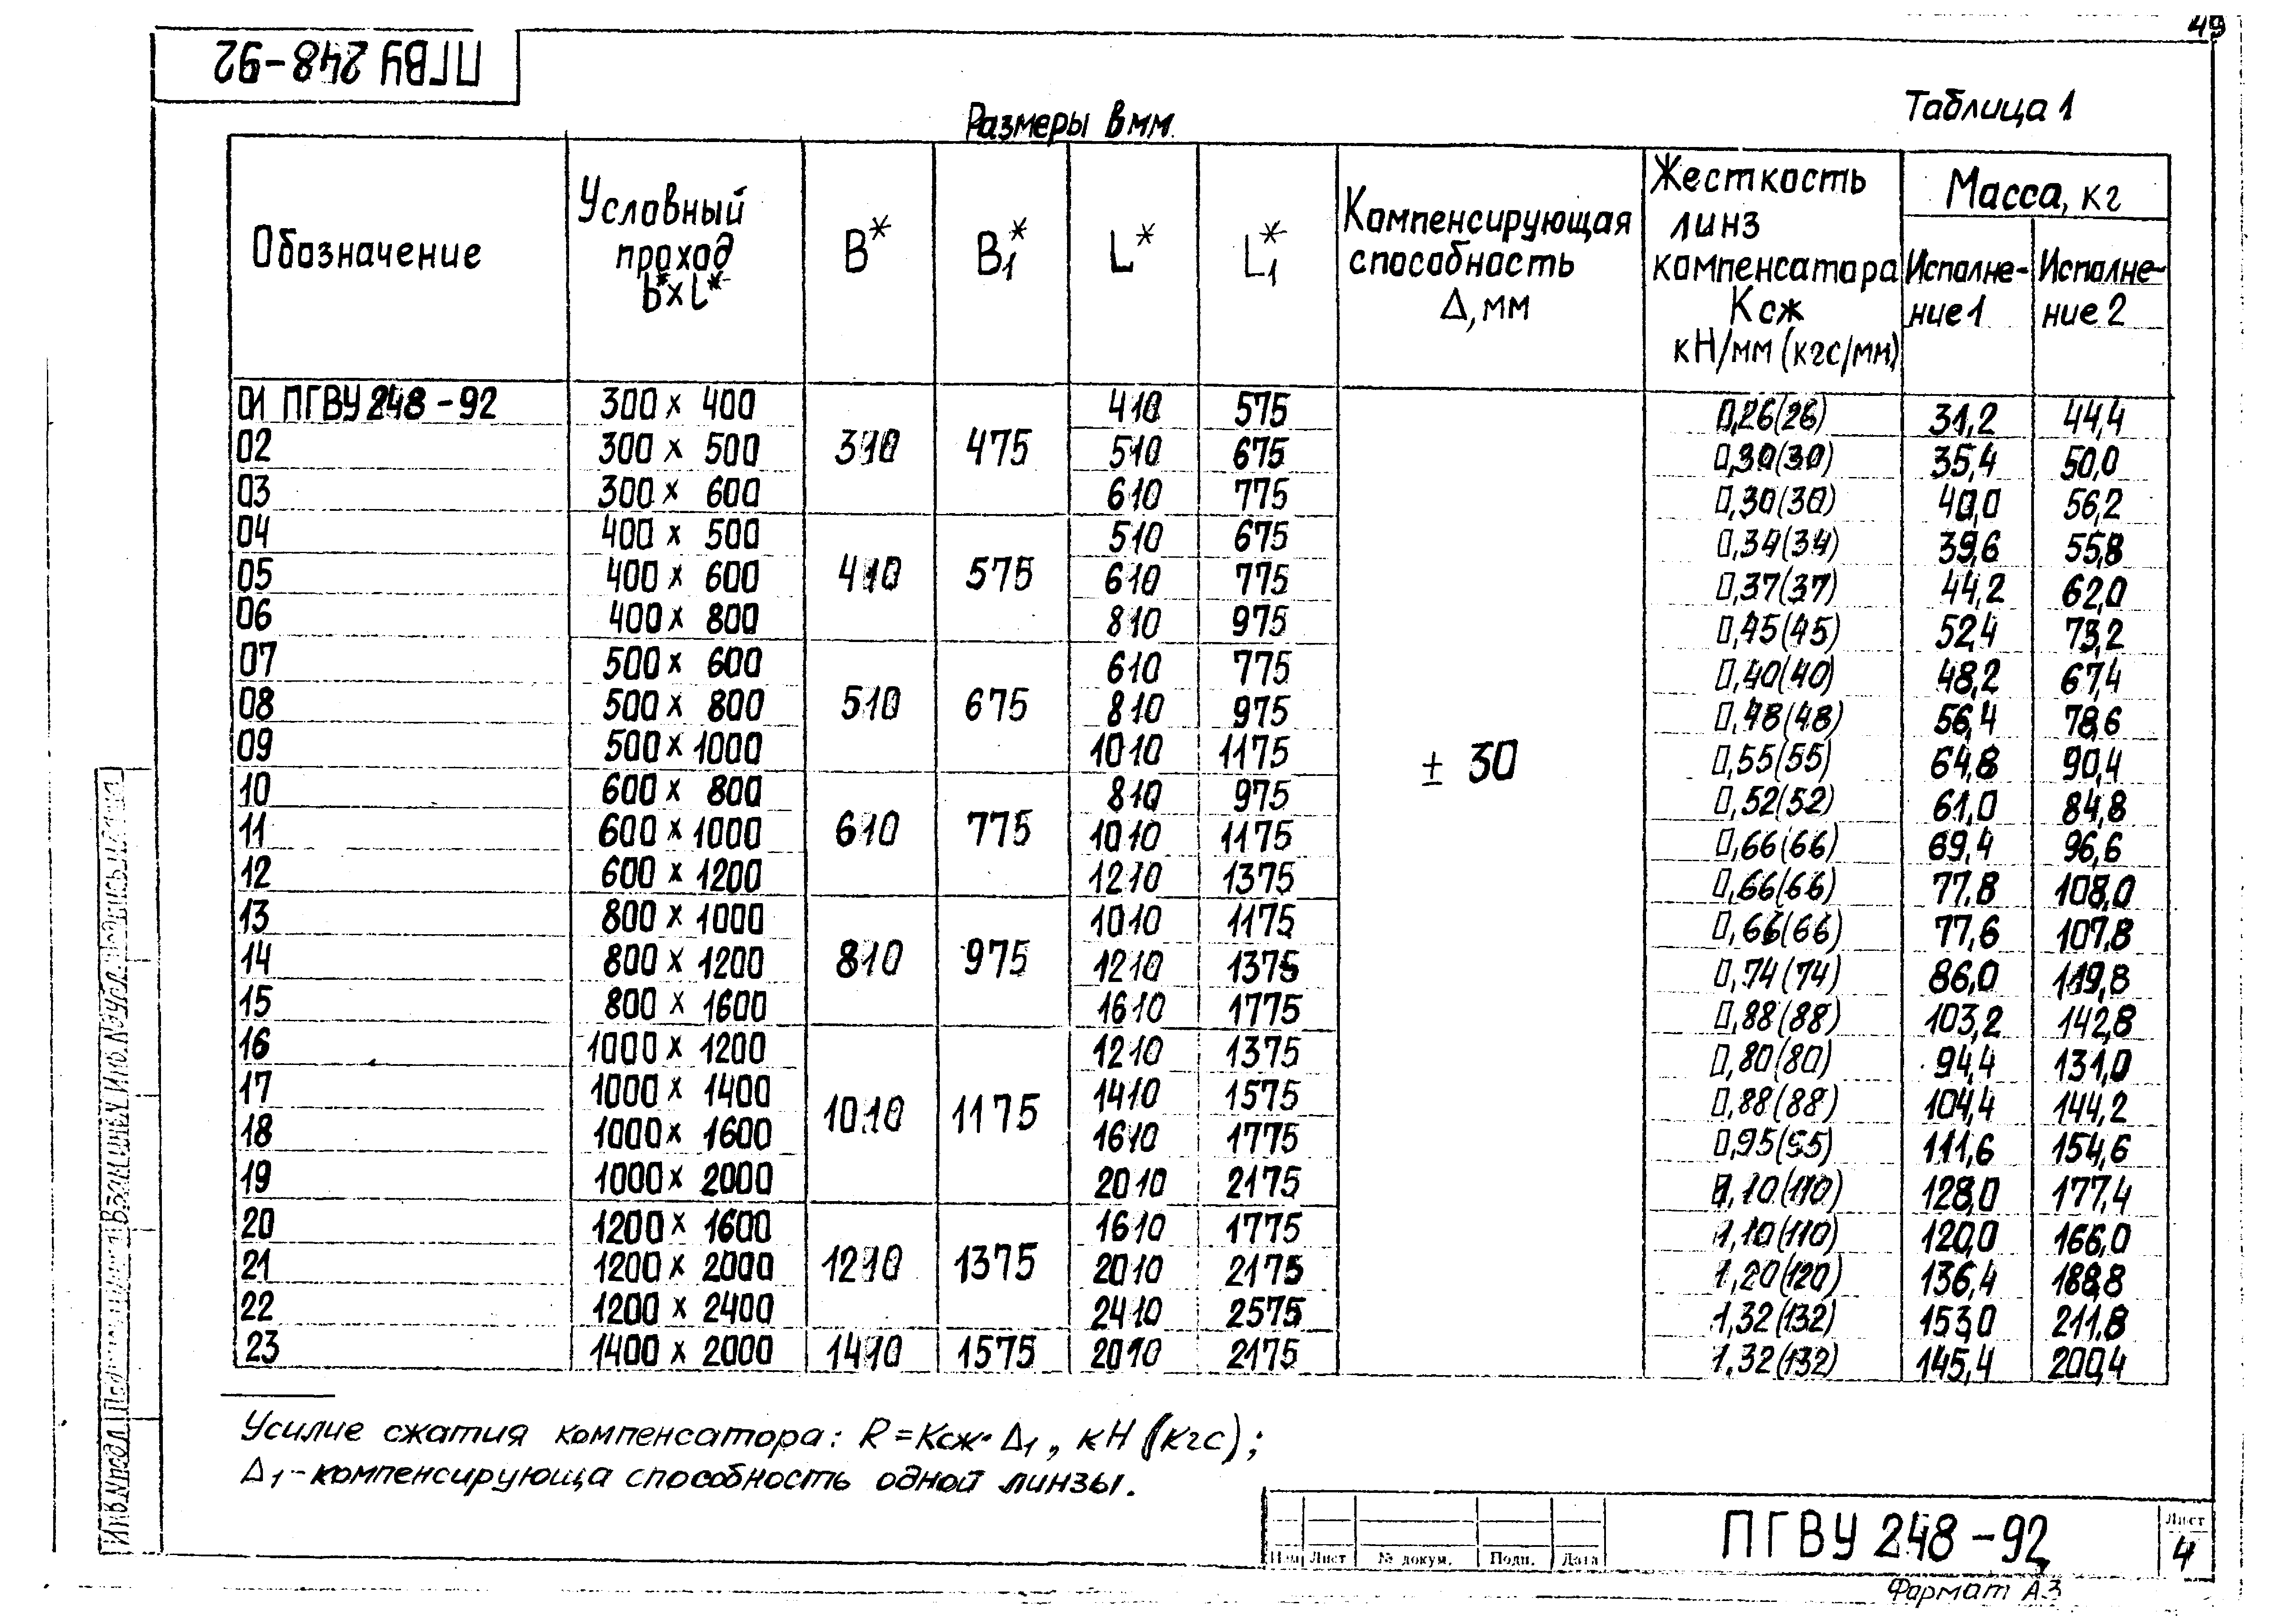 49
ПГВУ 248-92
Таблица 1
Размеры в мм.
Обозначение | Условный проход b*×l* | B* | B1* | L* | L1* | Компенсирующая способность Δ, мм | Жесткость линз компенсатора Ксж кН/мм (кгс/мм) | Масса, кг Исполнение 1 | Исполнение 2
01 ПГВУ 248-92 300 × 400 310 475 410 575 ± 30 0,26(26) 31,2 44,4
02 300 × 500 510 675 0,30(30) 35,4 50,0
03 300 × 600 610 775 0,30(30) 40,0 56,2
04 400 × 500 410 575 510 675 0,34(34) 39,6 55,8
05 400 × 600 610 775 0,37(37) 44,2 62,0
06 400 × 800 810 975 0,45(45) 52,4 73,2
07 500 × 600 510 675 610 775 0,40(40) 48,2 67,4
08 500 × 800 810 975 0,48(48) 56,4 78,6
09 500 × 1000 1010 1175 0,55(55) 64,8 90,4
10 600 × 800 610 775 810 975 0,52(52) 61,0 84,8
11 600 × 1000 1010 1175 0,66(66) 69,4 96,6
12 600 × 1200 1210 1375 0,66(66) 77,8 108,0
13 800 × 1000 810 975 1010 1175 0,66(66) 77,6 107,8
14 800 × 1200 1210 1375 0,74(74) 86,0 119,8
15 800 × 1600 1610 1775 0,88(88) 103,2 142,8
16 1000 × 1200 1010 1175 1210 1375 0,80(80) 94,4 131,0
17 1000 × 1400 1410 1575 0,88(88) 104,4 144,2
18 1000 × 1600 1610 1775 0,95(95) 111,6 154,6
19 1000 × 2000 2010 2175 1,10(110) 128,0 177,4
20 1200 × 1600 1210 1375 1610 1775 1,10(110) 120,0 166,0
21 1200 × 2000 2010 2175 1,20(120) 136,4 188,8
22 1200 × 2400 2410 2575 1,32(132) 153,0 211,8
23 1400 × 2000 1410 1575 2010 2175 1,32(132) 145,4 200,4
Усилие сжатия компенсатора: R=Ксж·Δ1, кН (кгс);
Δ1-компенсирующа способность одной линзы.
Изм Лист № докум. Подп. Дата
ПГВУ 248-92
Лист
4
Формат А3